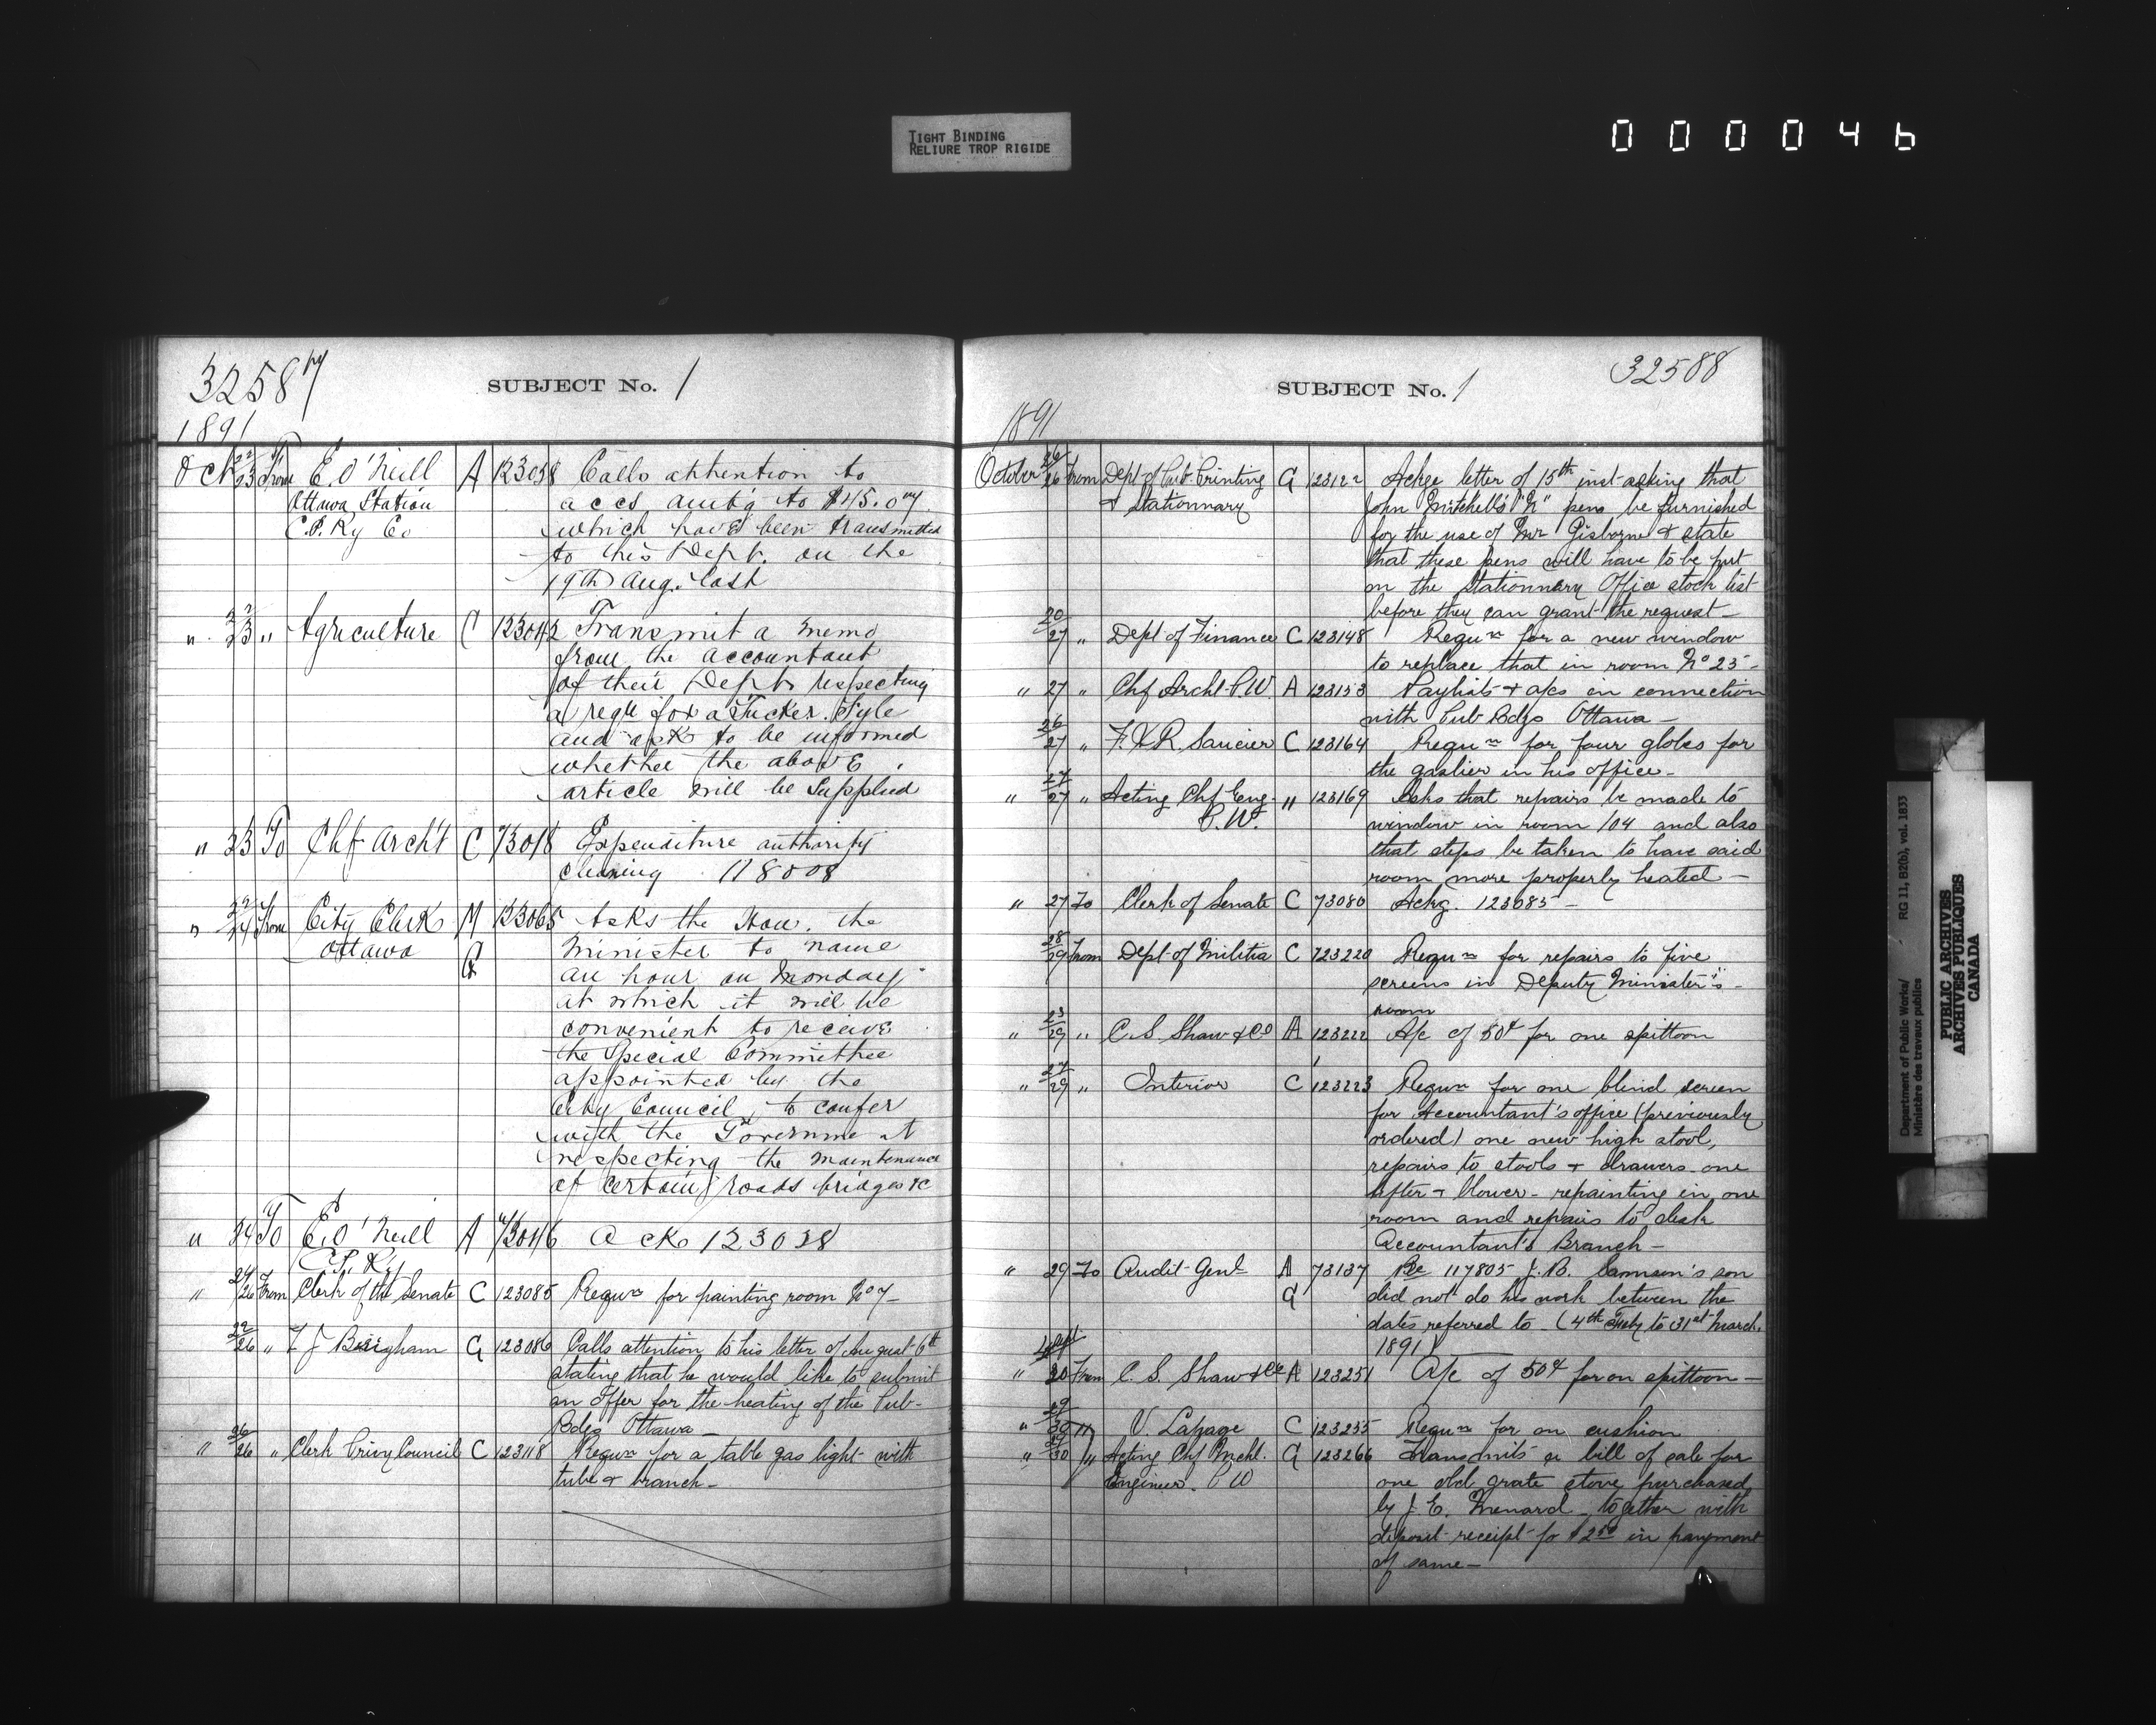 TIGHT BINDING
RELIURE TROP RIGIDE
000046
32587
SUBJECT No. 1
1891
Oct 22/23 From E. O'Neill A 123038 Calls attention to
Ottawa Station accs amt'g to $45.07
C.P. Ry Co which have been transmitted
to this Dept. on the
19th Aug. last
" 22/23 " Agriculture C 123042 Transmit a memo
from the accountant
of their Dept respecting
a requ for a Tucker File
and ask to be informed
whether the above
article will be supplied
" 23 To Chf Arch't C 73018 Expenditure authority
cleaning 118008
" 22/24 From City Clerk M 123065 Asks the Hon. the
Ottawa G Minister to name
an hour on Monday
at which it will be
convenient to receive
the Special Committee
appointed by the
City Council, to confer
with the Government
respecting the maintenance
of certain roads bridges &c
" 24 To E. O'Neill A 73046 Ack 123038
C.P. Ry
" 24/26 From Clerk of the Senate C 123085 Requn for painting room No 7 –
22/26 " F J Bingham G 123086 Calls attention to his letter of August 6th
stating that he would like to submit
an offer for the heating of the Pub-
Bdgs Ottawa –
" 26/26 " Clerk Privy Council C 123118 Requn for a table gas light with
tube & branch –
SUBJECT No. 1
32588
1891
October 26/26 From Dept of Pub. Printing G 123122 Ackge letter of 15th inst asking that
& Stationnary John Mitchell's "N" pens be furnished
for the use of Mr Gisborne & state
that these pens will have to be put
on the Stationnary Office stock list
before they can grant the request –
20/27 " Dept of Finance C 123148 Requn for a new window
to replace that in room No 25 –
" 27 " Chf Archt P.W. A 123153 Paylists & a/cs in connection
with Pub Bdgs Ottawa –
26/27 " F.X.R. Saucier C 123164 Requn for four globes for
the gaslier in his office –
" 27/27 " Acting Chf Eng. " 123169 Asks that repairs be made to
P.W. window in room 104 and also
that steps be taken to have said
room more properly heated –
" 27 To Clerk of Senate C 73080 Ackg. 123085 –
28/29 From Dept of Militia C 123220 Requn for repairs to five
screens in Deputy Minister's –
room
" 23/29 " C. S. Shaw & Co A 123222 A/c of 50¢ for one spittoon
" 27/29 " Interior C 123223 Requn for one blind screen
for Accountant's office (previously
ordered) one new high stool,
repairs to stools & drawers one
sifter & blower – repainting in one
room and repairs to desk
Accountant's Branch –
" 29 To Audit Genl A 73137 Re 117805 J. B. Samson's son
G did not do his work between the
dates referred to – (4th July to 31st March
1891)
Sept
" 30 From C. S. Shaw & Co A 123251 A/c of 50¢ for on spittoon –
" 29/30 " V. Lapage C 123255 Requn for on cushion
" 30 " Acting Chf Mechl. G 123266 Transmits a bill of sale for
Engineer. P W one old grate stove purchased
by J. E. Menard – together with
deposit receipt fo $2.50 in payment
of same –
Department of Public Works/ RG 11, B2(b), vol. 1833
Ministère des travaux publics
PUBLIC ARCHIVES
ARCHIVES PUBLIQUES
CANADA